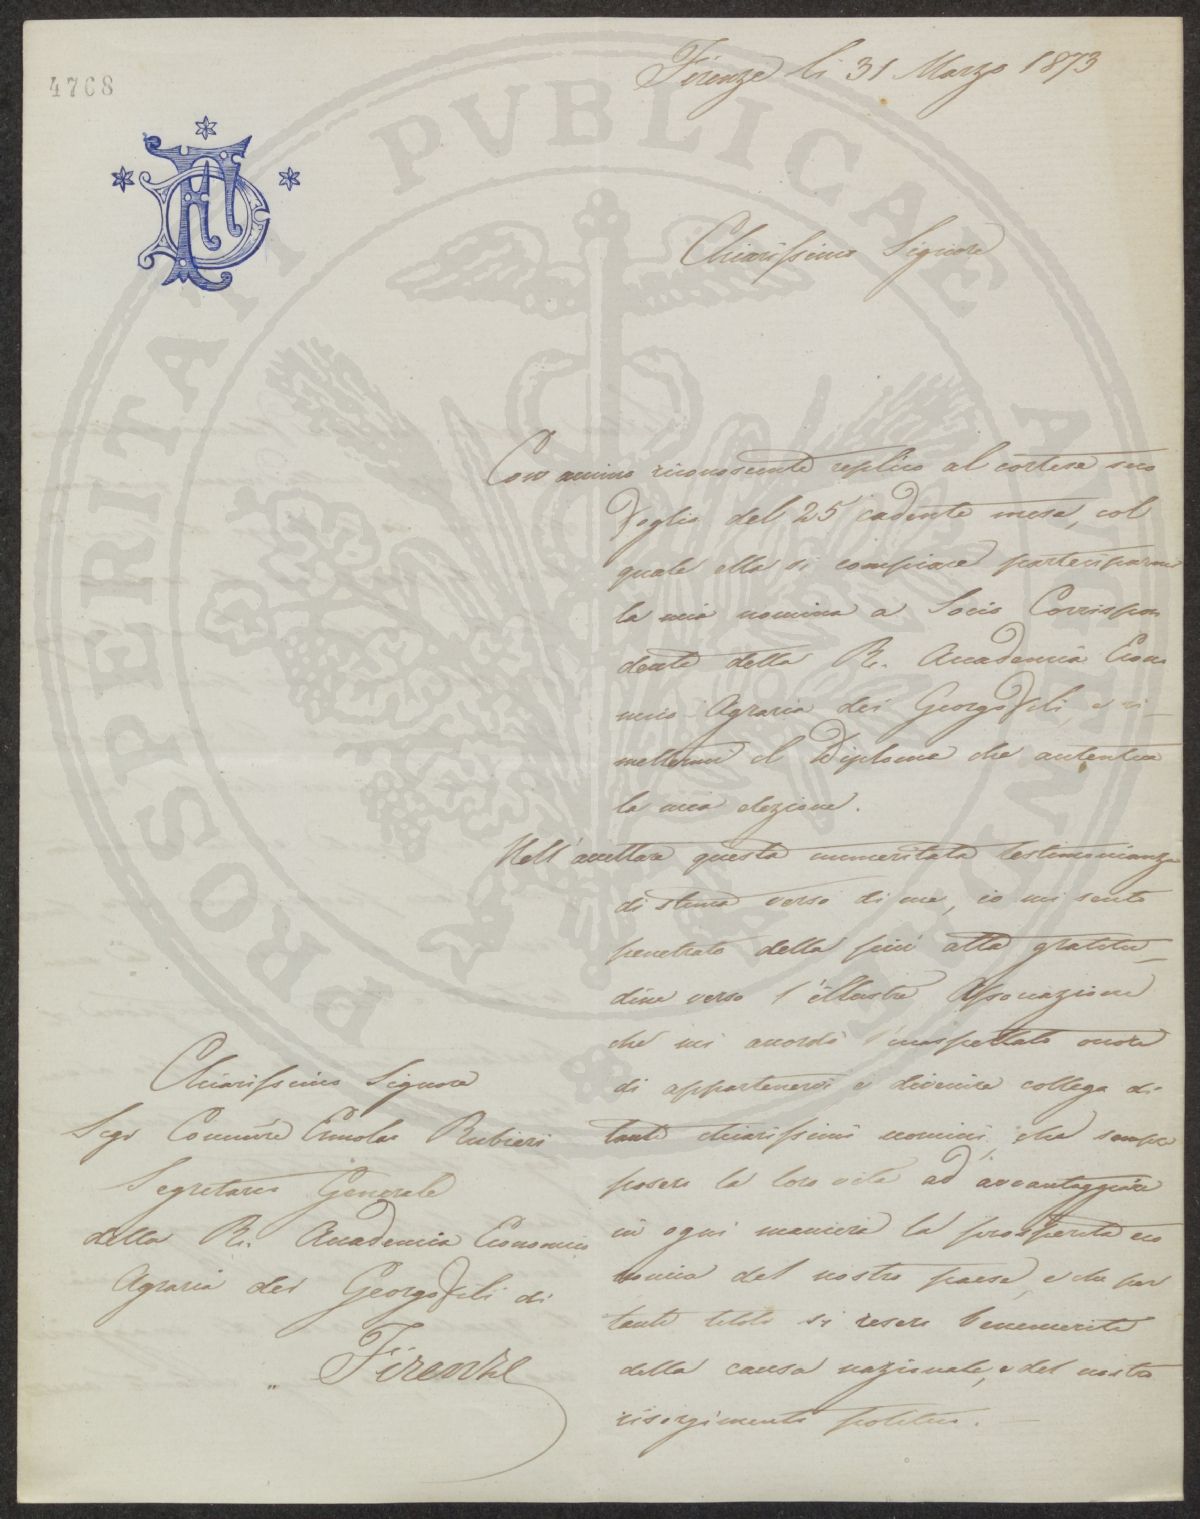 4768
Firenze li 31 Marzo 1873
Chiarissimo Signore
Con animo riconoscente replico al cortese suo
Foglio del 25 cadente mese, col
quale ella si compiace parteciparmi
la mia nomina a Socio Corrispon
dente della R. Accademia Econo
mico Agraria dei Georgofili, e ri-
mettermi il Diploma che autentica
la mia elezione.
Nell'accettare questa immeritata testimonianza
di stima verso di me, io mi sento
penetrato della più alta gratitu-
dine verso l'illustre Associazione
che mi accordò l'inaspettato onore
di appartenervi e divenire collega di
tanti chiarissimi uomini, che sempre
posero la loro vita ad avvantaggiare
in ogni maniera la prosperità eco
nomica del nostro paese, e che per
tanti titoli si resero benemeriti
della causa nazionale, e del nostro
risorgimento politico.
Chiarissimo Signore
Sigr Commre Ermolao Rubieri
Segretario Generale
della R. Accademia Economico
Agraria dei Georgofili di
Firenze
PROSPERITATI PVBLICAE AVGENDAE